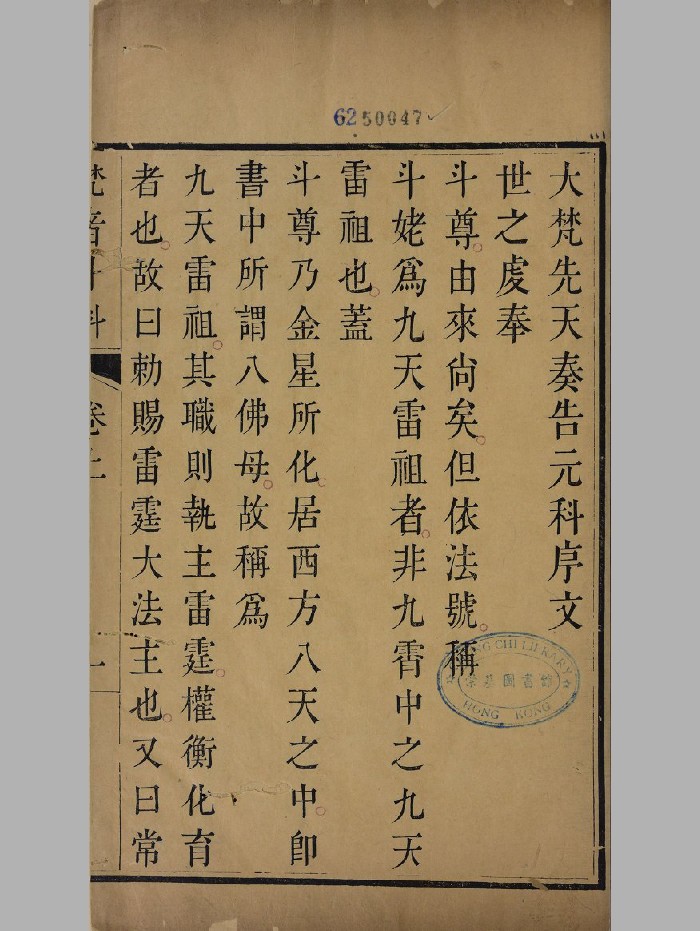 6250047
大梵先天奏告元科序文
世之虔奉
斗尊由來尙矣但依法號稱
斗姥爲九天雷祖者非九霄中之九天
雷祖也蓋
斗尊乃金星所化居西方八天之中卽
書中所謂八佛母故稱爲
九天雷祖其職則執主雷霆權衡化育
者也故曰勅賜雷霆大法主也又曰常
梵音斗科
卷上
一
CHI LIBRARY
基圖書館
HONG KONG